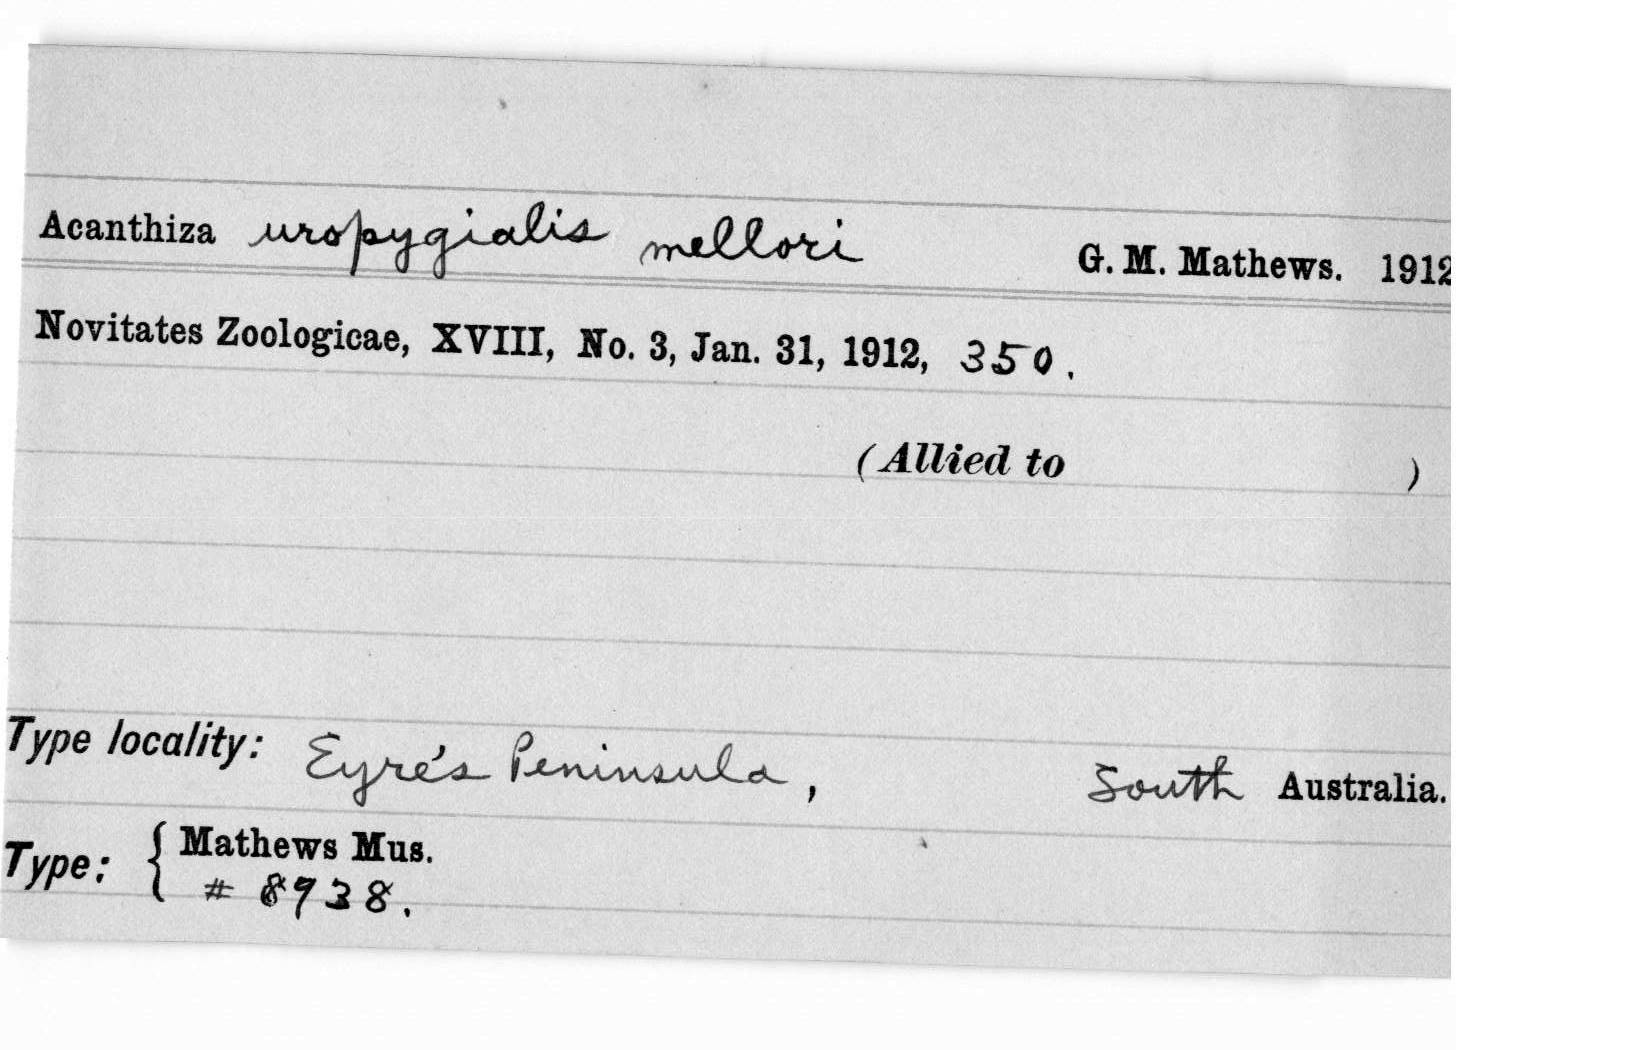 Acanthiza uropygialis mellori G. M. Mathews. 1912
Novitates Zoologicae, XVIII, No. 3, Jan. 31, 1912, 350.
(Allied to )
Type locality: Eyre's Peninsula, South Australia.
Type: { Mathews Mus.
# 8938.